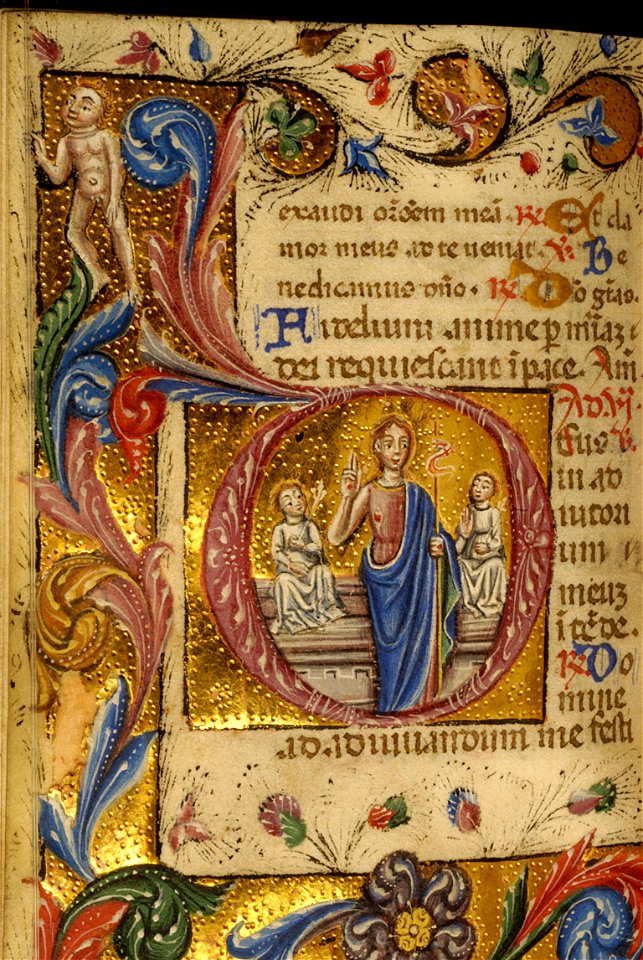 exaudi orōem meā. R Et cla
mor meus ad te veniat. V Be
nedicamus dño. R Deo grās
Fidelium anime p̄ mīaz
dei requiescant ī pace. Am̄.
Ad vj
Deus
in ad
iutori
um
meuz
ītēde
R Do
mine
ad adiuvandum me festi